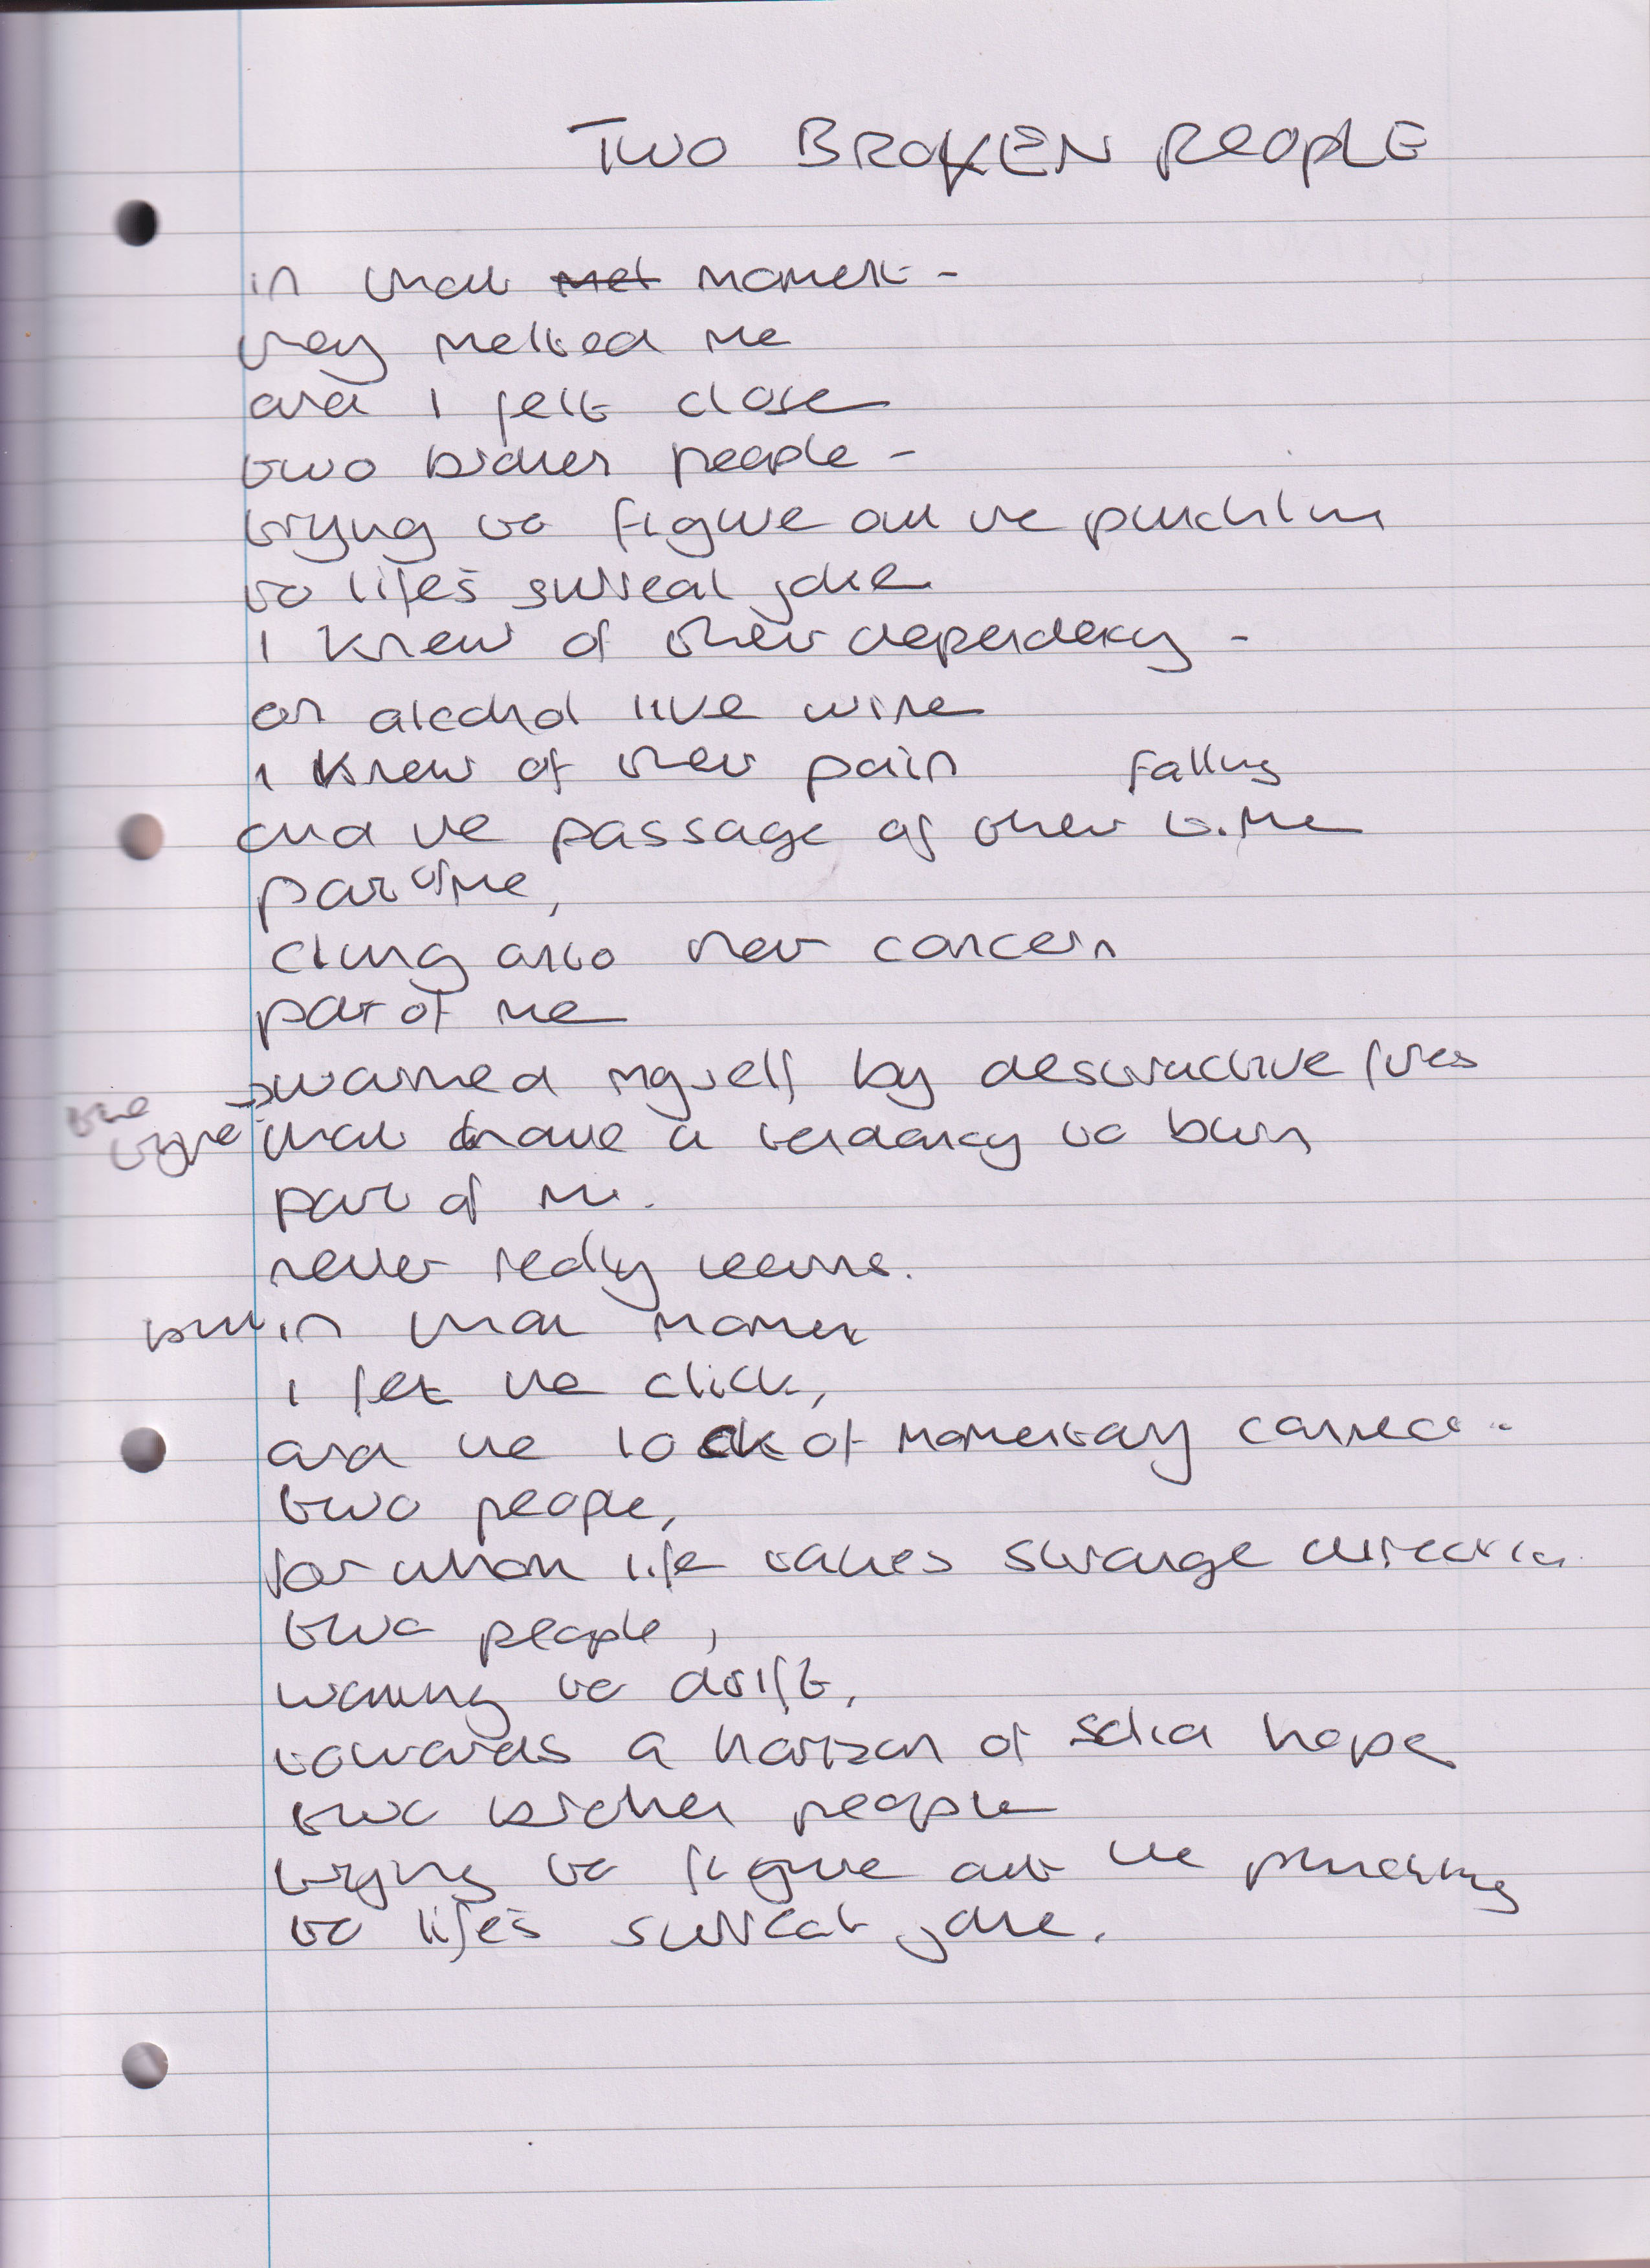 TWO BROKEN PEOPLE
in that met moment -
they melted me
and I felt close
two broken people -
trying to figure out the punchline
to lifes surreal joke
I knew of their dependency -
on alcohol like wine
I knew of their pain
falling
and the passage of their time
part of me,
clung onto their concern
part of me
warmed myself by destructive fires
the type that have a tendancy to burn
part of me.
never really learns.
but in that moment
I felt the click,
and the lock of momentary connect
two people,
for whom life takes strange direction
two people,
wanting to drift,
towards a horizon of solid hope
two broken people
trying to figure out the
to lifes surreal joke.